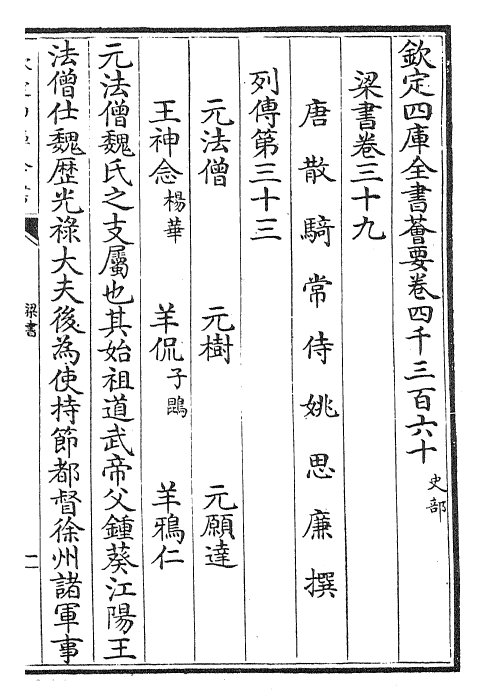 欽定四庫全書薈要卷四千三百六十 史部
梁書卷三十九
唐散騎常侍姚思廉撰
列傳第三十三
元法僧 元樹 元願達
王神念 楊華 羊侃 子鵾 羊鴉仁
元法僧魏氏之支屬也其始祖道武帝父鍾葵江陽王
法僧仕魏歴光祿大夫後為使持節都督徐州諸軍事
梁書